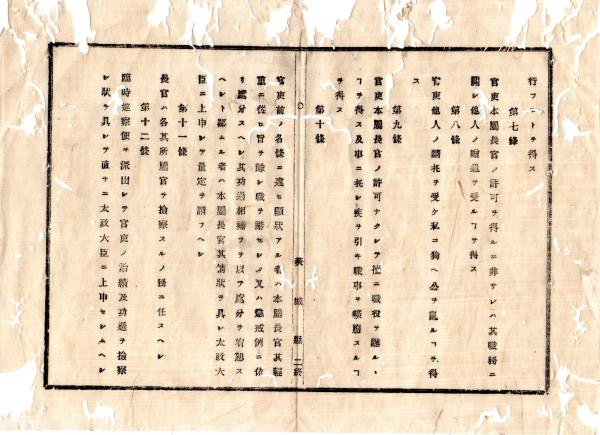 行フコトヲ得ス
第七條
官吏本屬長官ノ許可ヲ得ルニ非サレハ其職務ニ
關シ他人ノ贈遺ヲ受ルヿヲ得ス
第八條
官吏他人ノ請托ヲ受ケ私ニ狥ヘ公ヲ亂ルヿヲ得
ス
第九條
官吏本屬長官ノ許可ナクシテ擅ニ職役ヲ離ルヽ
ヿヲ得ス及事ニ托シ疾ヲ引キ職事ヲ曠廢スルヿ
ヲ得ス
第十條
茨城縣 二終
官吏前ノ各條ニ違ヒ顯狀アル者ハ本屬長官其輕
重ニ從ヒ旨ヲ除シ職ヲ辭セシメ又ハ懲戒例ニ依
リ處分スヘシ其功過相補フヲ以テ處分ヲ宥恕ス
ヘシト認ムル者ハ本屬長官其情狀ヲ具シ太政大
臣ニ上申シテ量定ヲ請フヘシ
第十一條
長官ハ各其所屬官ヲ撿察スルノ務ニ任スヘシ
第十二條
臨時巡察使ヲ派出シテ官吏ノ治績及功過ヲ撿察
シ狀ヲ具シテ直チニ太政大臣ニ上申セシムヘシ